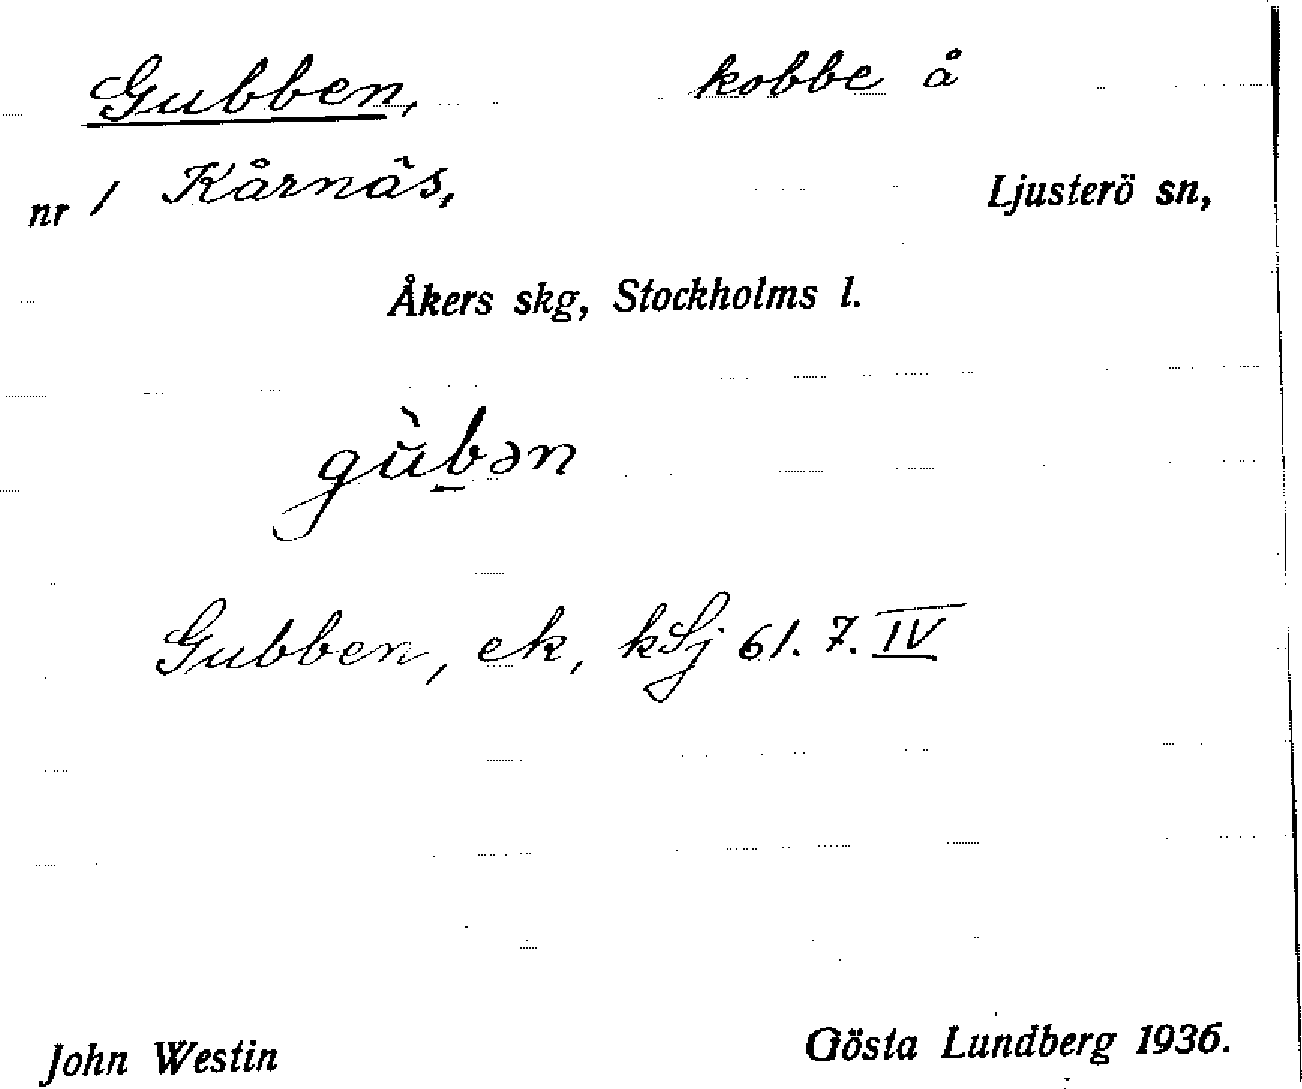 Gubben, kobbe å
nr 1 Kårnäs, Ljusterö sn,
Åkers skg, Stockholms l.
gùbən
Gubben, ek, kSj 61. 7. IV
John Westin Gösta Lundberg 1936.